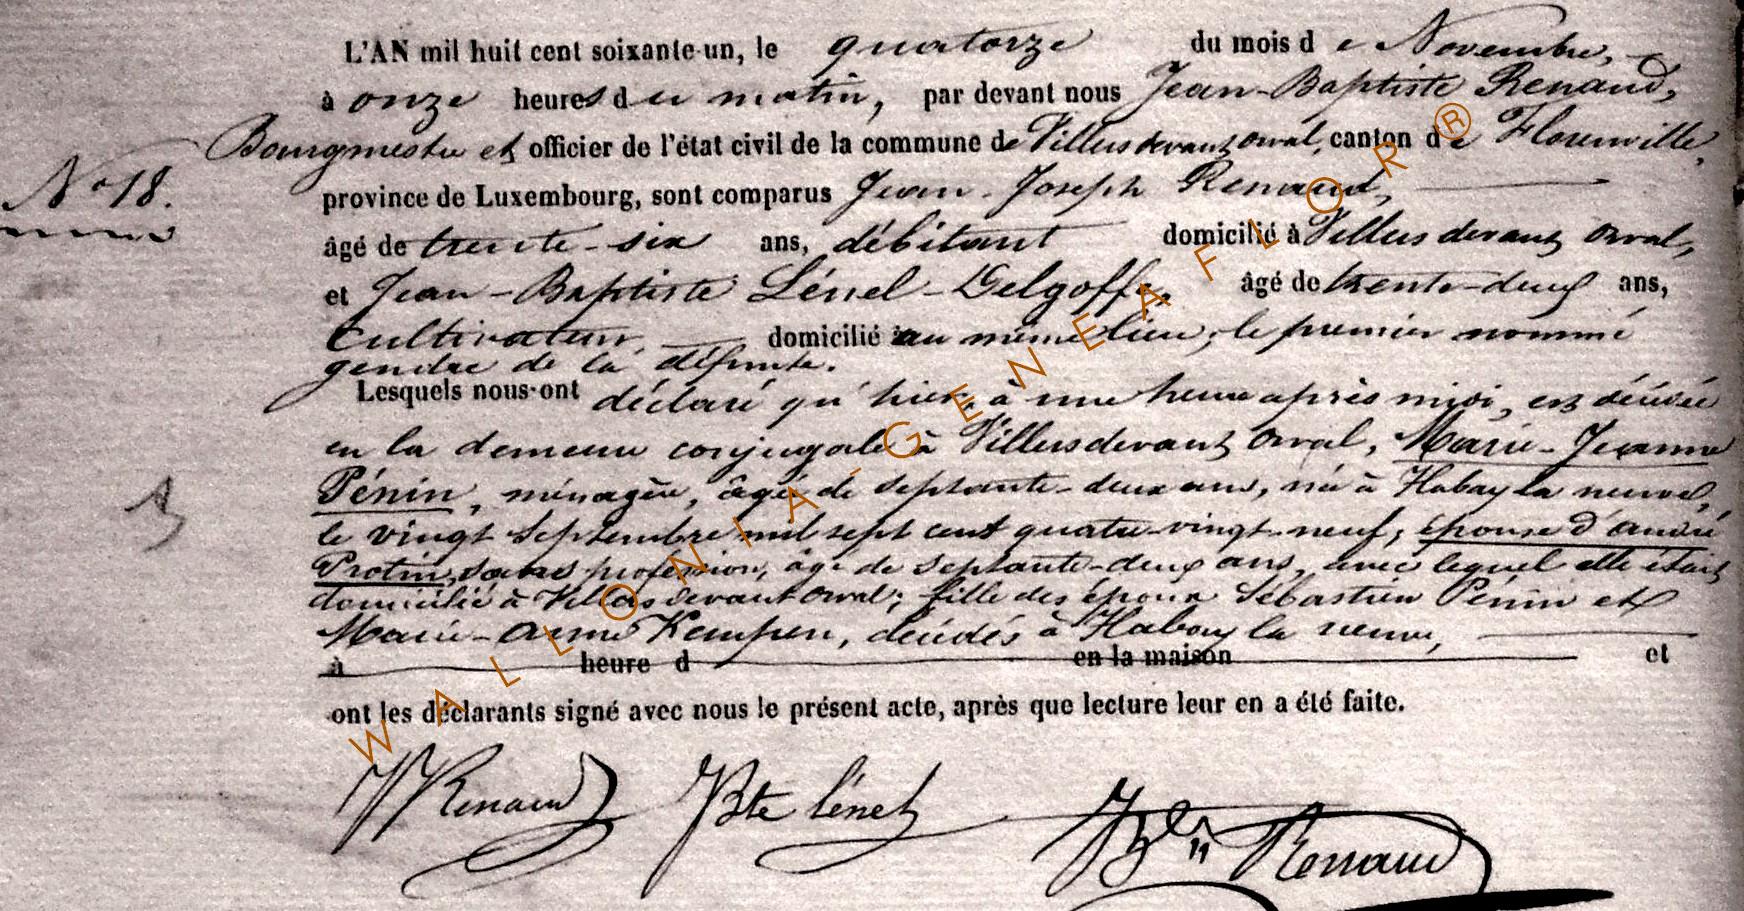 L'AN mil huit cent soixante-un, le quatorze du mois de Novembre,
à onze heures du matin, par devant nous Jean-Baptiste Renaud,
Bourgmestre et officier de l'état civil de la commune de Villers devant orval, canton de Florenville,
N° 18.
province de Luxembourg, sont comparus Jean-Joseph Renaud,
âgé de trente-six ans, débitant domicilié à Villers devant orval,
et Jean-Baptiste Lénel-Gelgoffe, âgé de trente-deux ans,
Cultivateur, domicilié au même lieu; le premier nommé
gendre de la défunte.
Lesquels nous ont déclaré qu'hier, à une heure après midi, est décédée
en la demeure conjugale à Villers devant Orval, Marie-Jeanne
Pénin, ménagère, âgée de septante-deux ans, née à Habay la neuve,
le vingt Septembre mil sept cent quatre-vingt-neuf; épouse d'andré
Protin, sans profession, âgé de septante-deux ans, avec lequel elle était
domiciliée à Villers devant Orval; fille des époux Sébastien Pénin et
Marie-Anne Kempen, décédés à Habay la neuve,
à heure d en la maison et
ont les déclarants signé avec nous le présent acte, après que lecture leur en a été faite.
JJ Renaud JBte Lénel JBte Renaud
WALLONIA-GENEAFLOR®